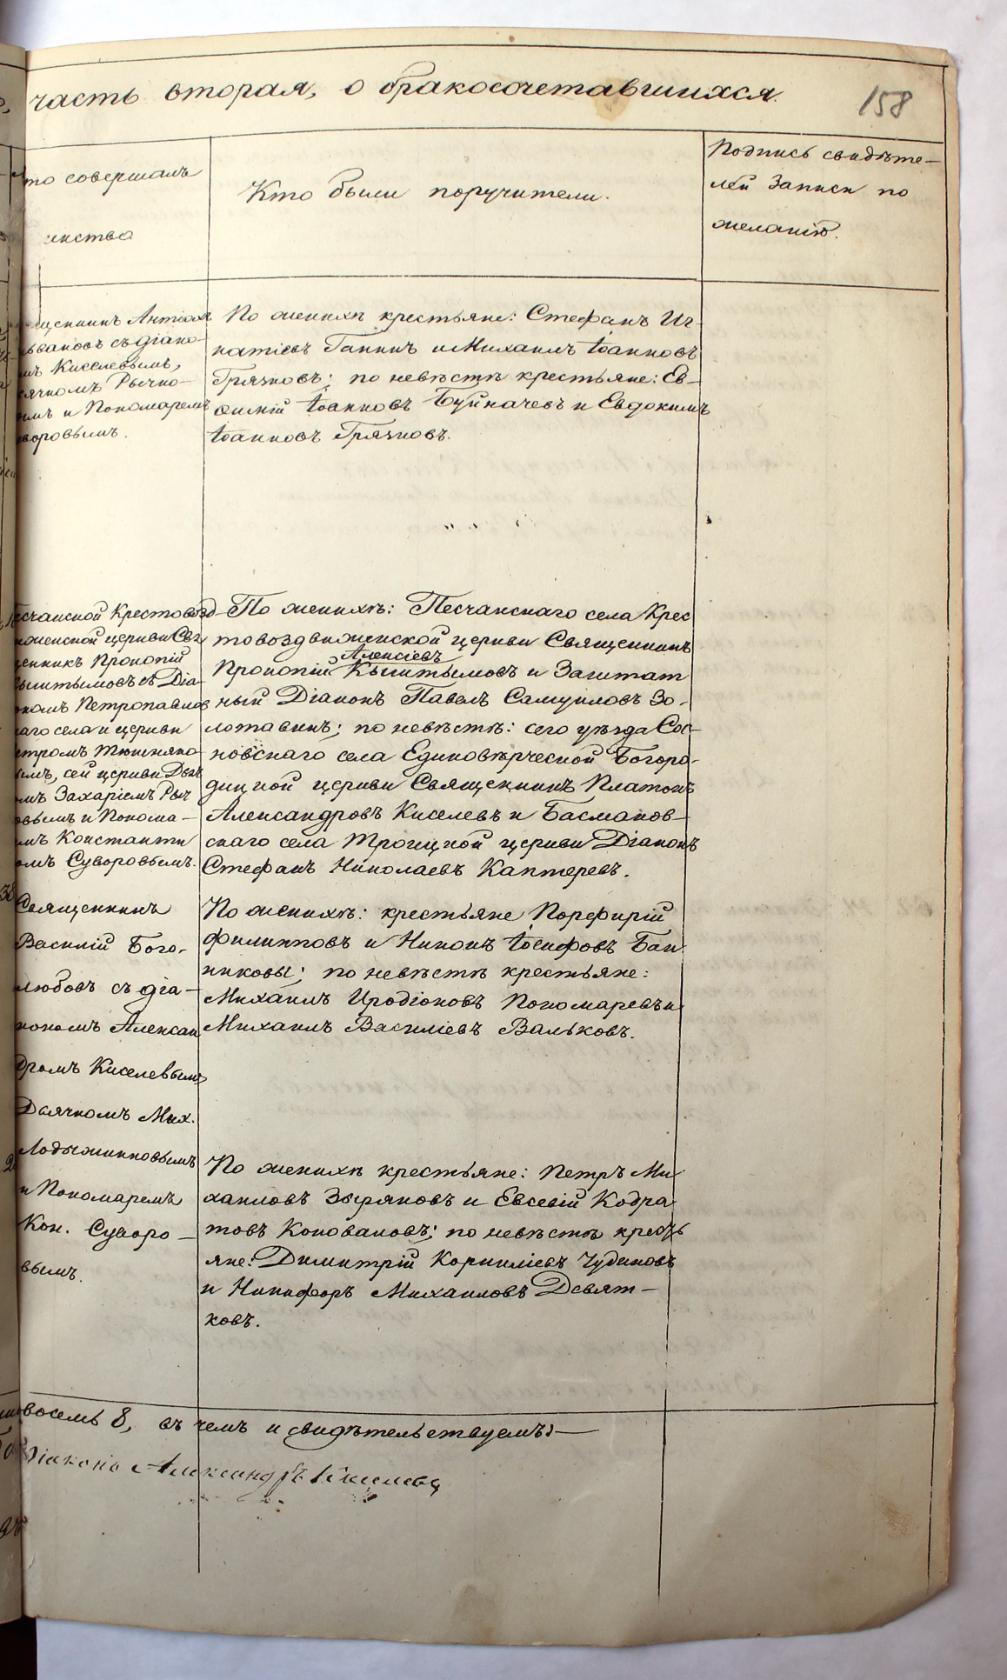 часть вторая, о бракосочетавшихся.
158
то совершалъ
инство
Кто были поручители.
Подпись свидѣте-
лей записи по
желанію.
щенникъ Антіохъ
Ивановъ съ діако-
мъ Киселевымъ,
ячкомъ Рычко-
имъ и Пономаремъ
воровымъ.
По женихѣ крестьяне: Стефанъ Иг-
натіевъ Ганинъ и Михаилъ Іоанновъ
Грячковъ; по невѣстѣ крестьяне: Ев-
фимій Іоанновъ Буйначевъ и Евдокимъ
Іоанновъ Грячковъ.
Песчанской Крестовозд-
виженской церкви Свя
щенникъ Прокопій
Кыштымовъ съ Діа-
кномъ Петропавлов
скаго села и церкви
етромъ Тюшняко-
вымъ, сей церкви Дьяч
омъ Захаріемъ Рыч
овымъ и Понома-
мъ Константи
омъ Суворовымъ.
По женихѣ: Песчанскаго села Крес
товоздвиженской церкви Священникъ
Алексіевъ
Прокопій Кыштымовъ и Заштат
ный Діаконъ Павелъ Самуиловъ Зо-
лотавинъ; по невѣстѣ: сего уѣзда Сос-
новскаго села Единовѣрческой Богоро-
дицкой церкви Священникъ Платонъ
Александровъ Киселевъ и Басманов-
скаго села Троицкой церкви Діаконъ
Стефанъ Николаевъ Каптеревъ.
Священникъ
Василій Бого-
любовъ съ діа-
кономъ Алексан
дромъ Киселевымъ
Дьячкомъ Мих.
Лодыжниковымъ
и Пономаремъ
Кон. Суворо-
вымъ.
По женихѣ: крестьяне Порфирій
Филипповъ и Никонъ Іосифовъ Бан
никовы; по невѣстѣ крестьяне:
Михаилъ Иродіоновъ Пономаревъ и
Михаилъ Василіевъ Вальковъ.
По женихѣ крестьяне: Петръ Ми
хаиловъ Зыряновъ и Евсевій Кодра
товъ Коноваловъ; по невѣстѣ кресть
яне: Димитрій Корниліевъ Чудиновъ
и Никифоръ Михаиловъ Девят-
ковъ.
восемь 8, въ чемъ и свидѣтельствуемъ:
Діаконъ Александръ Киселевъ